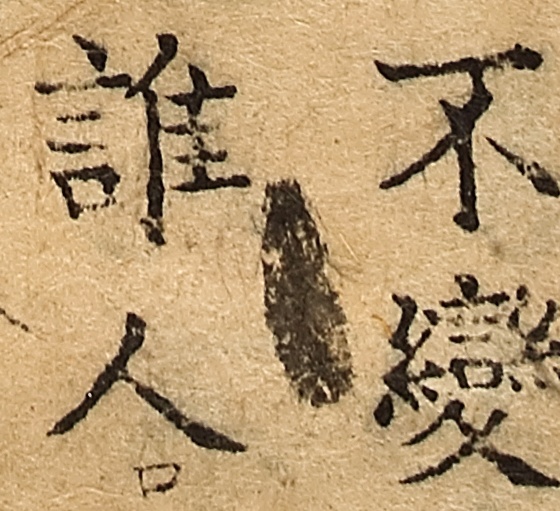 不變
誰人